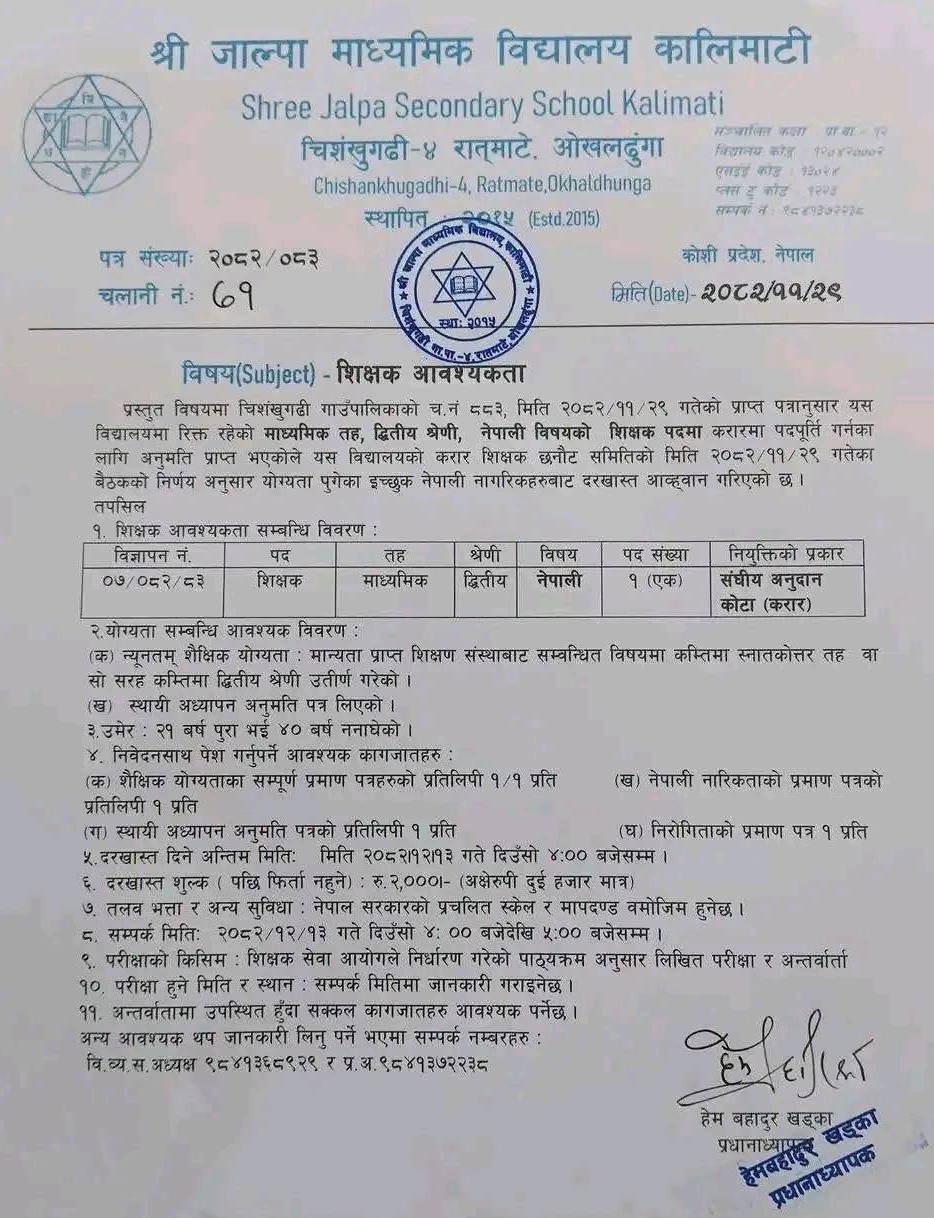 श्री जाल्पा माध्यमिक विद्यालय कालिमाटी
Shree Jalpa Secondary School Kalimati
चिशंखुगढी-४ रात्माटे, ओखलढुंगा
Chishankhugadhi-4, Ratmate,Okhaldhunga
स्थापित : २०१५ (Estd.2015)
सञ्चालित कक्षा : प्रा वा - १२
विद्यालय कोड : १२०४२०००२
एसईई कोड : १३०२४
प्लस टु कोड : १२२३
सम्पर्क नं : ९८४१३७२२३८
श्री जाल्पा माध्यमिक विद्यालय, कालिमाटी
स्था: २०१५
चिशंखुगढी गा.पा.-४, रातमाटे, ओखलढुंगा
पत्र संख्याः २०८२/०८३
कोशी प्रदेश, नेपाल
चलानी नं.: ६१
मिति(Date)- २०८२/११/२९
विषय(Subject) - शिक्षक आवश्यकता
प्रस्तुत विषयमा चिशंखुगढी गाउँपालिकाको च.नं ८८३, मिति २०८२/११/२९ गतेको प्राप्त पत्रानुसार यस
विद्यालयमा रिक्त रहेको माध्यमिक तह, द्वितीय श्रेणी, नेपाली विषयको शिक्षक पदमा करारमा पदपूर्ति गर्नका
लागि अनुमति प्राप्त भएकोले यस विद्यालयको करार शिक्षक छनौट समितिको मिति २०८२/११/२९ गतेका
बैठकको निर्णय अनुसार योग्यता पुगेका इच्छुक नेपाली नागरिकहरुबाट दरखास्त आव्हवान गरिएको छ ।
तपसिल
१. शिक्षक आवश्यकता सम्बन्धि विवरण :
विज्ञापन नं. पद तह श्रेणी विषय पद संख्या नियुक्तिको प्रकार
०७/०८२/८३ शिक्षक माध्यमिक द्वितीय नेपाली १ (एक) संघीय अनुदान
कोटा (करार)
२.योग्यता सम्बन्धि आवश्यक विवरण :
(क) न्यूनतम् शैक्षिक योग्यता : मान्यता प्राप्त शिक्षण संस्थाबाट सम्बन्धित विषयमा कम्तिमा स्नातकोत्तर तह वा
सो सरह कम्तिमा द्वितीय श्रेणी उतीर्ण गरेको ।
(ख) स्थायी अध्यापन अनुमति पत्र लिएको ।
३.उमेर : २१ बर्ष पुरा भई ४० बर्ष ननाघेको ।
४. निवेदनसाथ पेश गर्नुपर्ने आवश्यक कागजातहरु :
(क) शैक्षिक योग्यताका सम्पूर्ण प्रमाण पत्रहरुको प्रतिलिपी १/१ प्रति (ख) नेपाली नारिकताको प्रमाण पत्रको
प्रतिलिपी १ प्रति
(ग) स्थायी अध्यापन अनुमति पत्रको प्रतिलिपी १ प्रति (घ) निरोगिताको प्रमाण पत्र १ प्रति
५.दरखास्त दिने अन्तिम मिति: मिति २०८२।१२।१३ गते दिउँसो ४:०० बजेसम्म ।
६. दरखास्त शुल्क ( पछि फिर्ता नहुने) : रु.२,०००।- (अक्षेरुपी दुई हजार मात्र)
७. तलव भत्ता र अन्य सुविधा : नेपाल सरकारको प्रचलित स्केल र मापदण्ड वमोजिम हुनेछ ।
८. सम्पर्क मिति: २०८२/१२/१३ गते दिउँसो ४: ०० बजेदेखि ५:०० बजेसम्म ।
९. परीक्षाको किसिम : शिक्षक सेवा आयोगले निर्धारण गरेको पाठ्यक्रम अनुसार लिखित परीक्षा र अन्तर्वार्ता
१०. परीक्षा हुने मिति र स्थान : सम्पर्क मितिमा जानकारी गराइनेछ ।
११. अन्तर्वातामा उपस्थित हुँदा सक्कल कागजातहरु आवश्यक पर्नेछ ।
अन्य आवश्यक थप जानकारी लिनु पर्ने भएमा सम्पर्क नम्बरहरु :
वि.व्य.स.अध्यक्ष ९८४१३६८९२९ र प्र.अ.९८४१३७२२३८
हेम बहादुर खड्का
प्रधानाध्यापक
हेमबहादुर खड्का
प्रधानाध्यापक